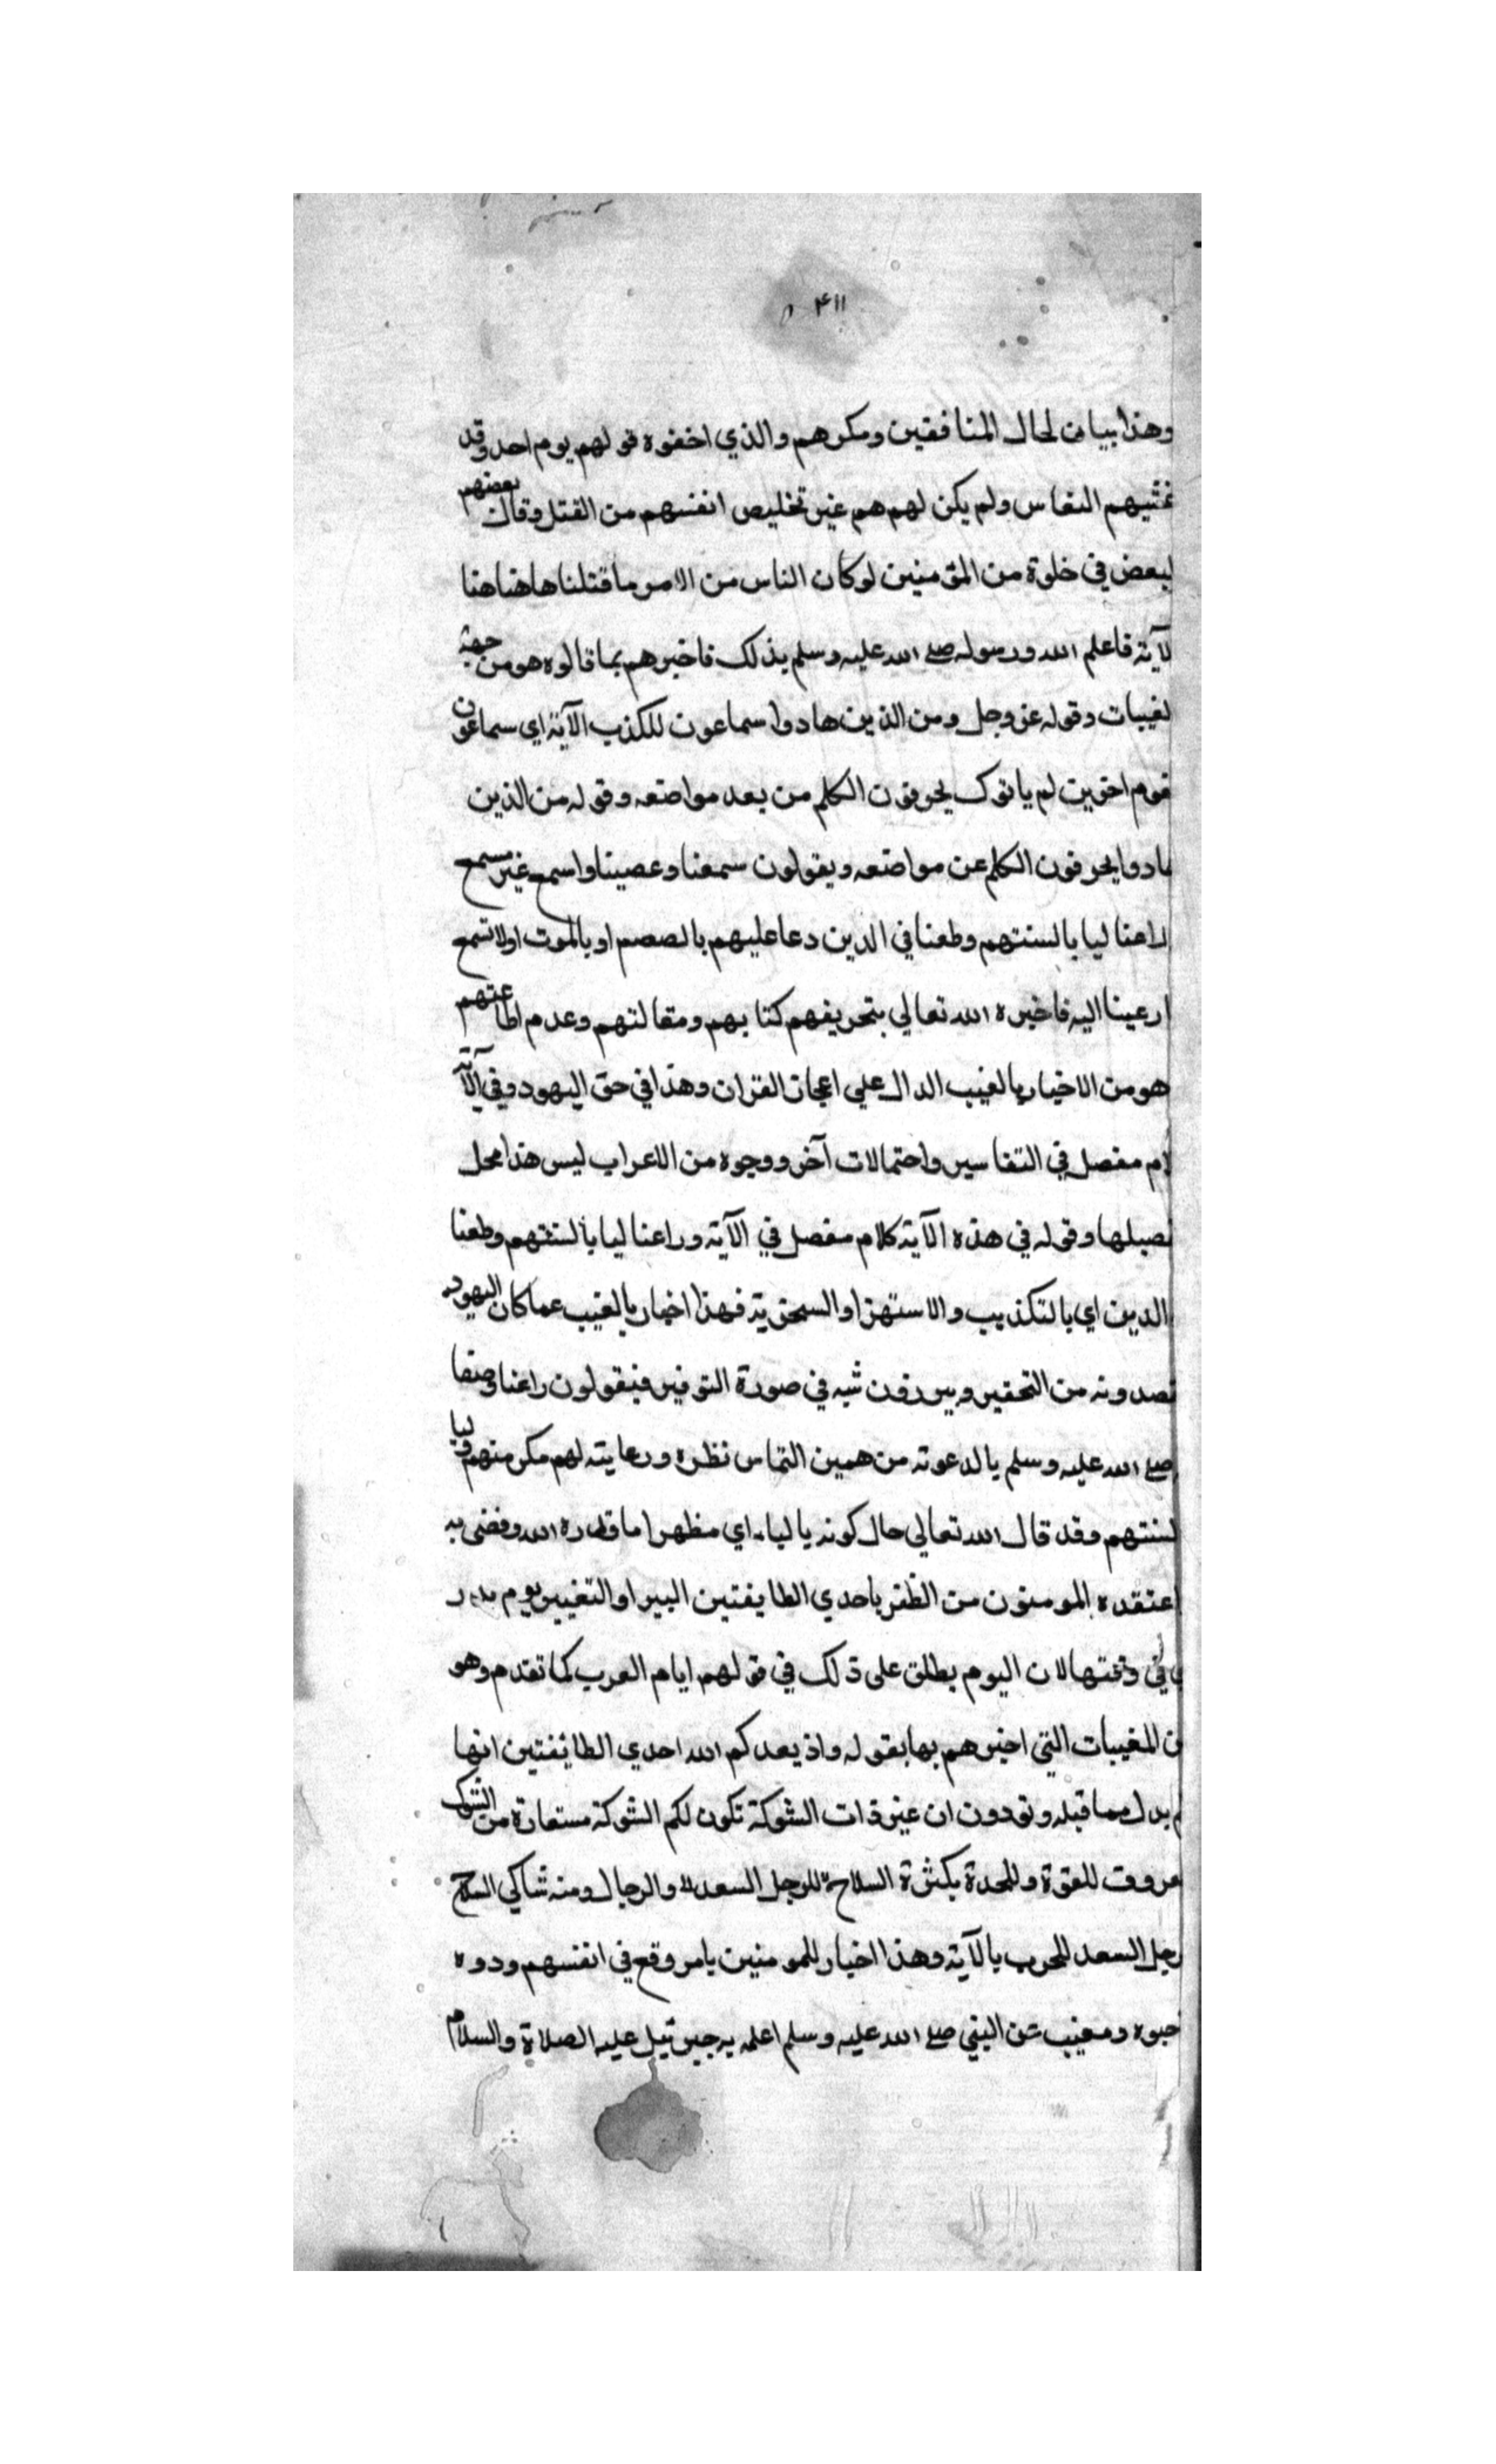 ۴۱۱
وهذا بيان لحال المنافقين ومكرهم والذي اخفوه قولهم يوم احد وقد
غشيهم النعاس ولم يكن لهم هم غير تخليص انفسهم من القتل وقال بعضهم
لبعض في خلوة من المؤمنين لوكان الناس من الامر ما قتلنا هاهنا هنا
لآية فاعلم الله ورسوله صلے الله عليه وسلم بذلك فاخبرهم بما قالوه هو من جهة
لغيبات وقوله عز وجل ومن الذين هادوا سماعون للكذب الآية اي سماعون
قوم اخرين لم ياتوك يحرفون الكلم من بعد مواضعه وقوله من الذين
هادوا يحرفون الكلم عن مواضعه ويقولون سمعنا وعصينا واسمع غير مسمع
راعنا ليا بالسنتهم وطعنا في الدين دعا عليهم بالصمم او بالموت اولا تسمع
ارعينا اليه فاخبره الله تعالي بتحريفهم كتابهم ومقالتهم وعدم اطاعتهم
هو من الاخبار بالغيب الدال علي اعجاز القران وهذا في حق اليهود وفي الآية
لام مفصل في التفاسير واحتمالات آخر ووجوه من الاعراب ليس هذا محل
نصيلها وقوله في هذه الآية كلام مفصل في الآية وراعنا ليا بالسنتهم وطعنا
الدين اي بالتكذيب والاستهزا والسخرية فهذا اخبار بالغيب عما كان اليهود
نصدونه من التحقير ويبرزون شيه في صورة التوقير فيقولون راعنا وصفا
صلے الله عليه وسلم بالدعوته من همين التماس نظره ورعايته لهم مكر منهم وليا
لسنتهم وقد قال الله تعالي حال كونه باليا۔ اي مظهرا ما قدره الله وقضى به
اعتقده المومنون من الظفر باحدي الطايفتين البير او التغيير يوم بدر
في وقتها لان اليوم يطلق على ذلك في قولهم ايام العرب كما تقدم وهو
ن المغيبات التي اخبرهم بها بقوله واذ يعدكم الله احدي الطائفتين انها
م بدل مما قبله وتودون ان غير ذات الشوكة تكون لكم الشوكة مستعارة من الشوك
عروف للقوة وللحدة بكثرة السلاح للرجل السعد والرجال ومنه شاكي السلاح
رجل السعد للحرب بالآية وهذا اخبار للمومنين بامر وقع في انفسهم ودوه
حبوه ومغيب عن النبي صلے الله عليه وسلم اعلمه به جبرئيل عليه الصلاة والسلام